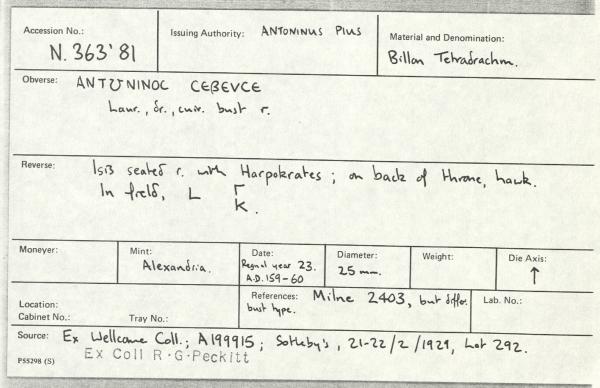 Accession No.:
N.363'81
Issuing Authority: ANTONINUS PIUS
Material and Denomination:
Billon Tetradrachm.
Obverse: ANTѠNINOC CEBEVCE
Laur., dr., cuir. bust r.
Reverse: Isis seated r. with Harpokrates; on back of throne, hawk.
In field, L Γ
K.
Moneyer:
Mint:
Alexandria.
Date:
Regnal year 23.
A.D. 159-60
Diameter:
25 mm.
Weight:
Die Axis:
↑
Location:
Cabinet No.: Tray No.:
References: Milne 2403, but differ.
bust type.
Lab. No.:
Source: Ex Wellcome Coll.; A199915; Sotheby's, 21-22/2/1929, Lot 292.
Ex Coll R·G·Peckitt
PS5298 (S)